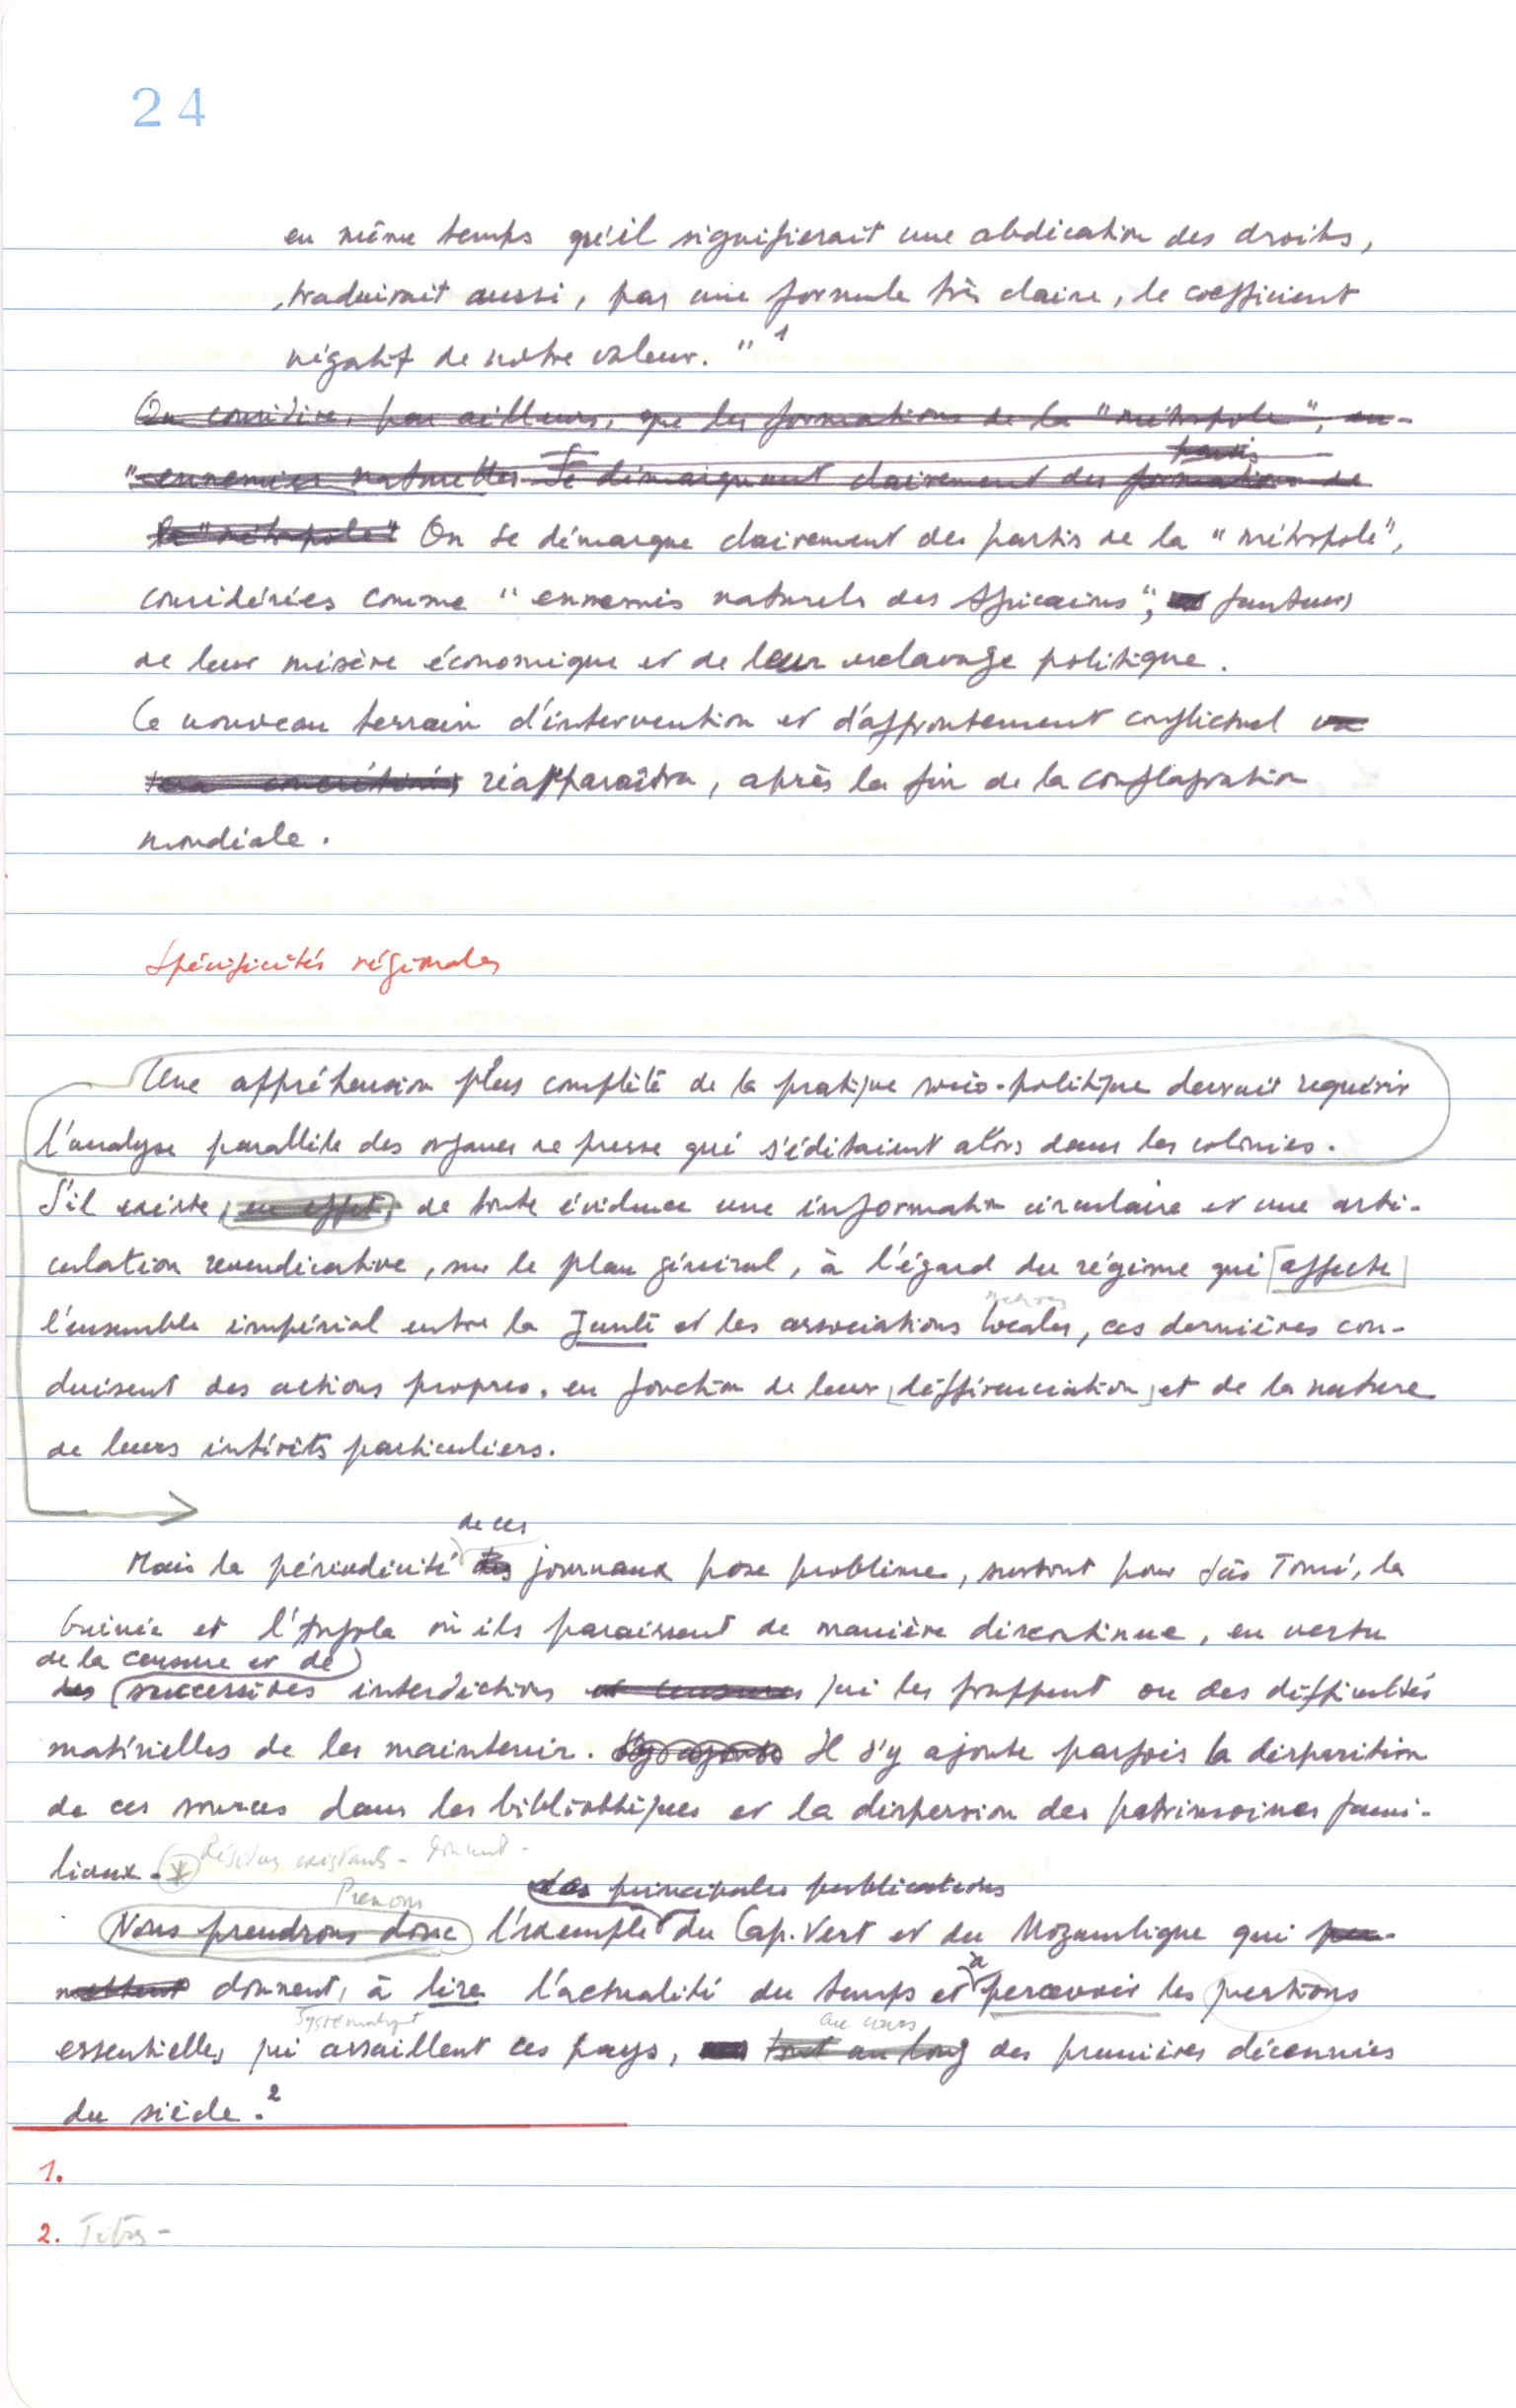 24
en même temps qu'il signifierait une abdication des droits,
traduirait aussi, par une formule très claire, le coefficient
négatif de notre valeur. " 1
On considère, par ailleurs, que les formations de la "métropole", en-
"ennemies naturelles Se démarquant clairement des partis formations de
la "métropole" On se démarque clairement des partis de la "métropole",
considérées comme "ennemis naturels des Africains", fauteurs
de leur misère économique et de leur esclavage politique.
Ce nouveau terrain d'intervention et d'affrontement conflictuel va
sera concrétisés réapparaîtra, après la fin de la conflagration
mondiale.
Spécificités régionales
Une appréhension plus complète de la pratique socio-politique devrait requérir
l'analyse parallèle des organes de presse qui s'éditaient alors dans les colonies.
S'il existe, en effet, de toute évidence une information circulaire et une arti-
culation revendicative, sur le plan général, à l'égard du régime qui [affecte]
l'ensemble impérial entre la Junte et les associations locales, ces dernières con-
duisent des actions propres, en fonction de leur [différenciation] et de la nature
de leurs intérêts particuliers.
de ces
Mais la périodicité des journaux pose problème, surtout pour São Tomé, la
Guinée et l'Angola où ils paraissent de manière discontinue, en vertu
de la censure et de
des successives interdictions et censures qui les frappent ou des difficultés
matérielles de les maintenir. S'y ajoute Il s'y ajoute parfois la disparition
de ces sources dans les bibliothèques et la dispersion des patrimoines fami-
liaux. * existants -
Prenons des principales publications
Nous prendrons donc l'exemple du Cap-Vert et du Mozambique qui per-
mettent donnent, à lire l'actualité du temps et à percevoir les questions
au cours
essentielles qui assaillent ces pays, tout au long des premières décennies
du siècle. 2
1.
2. Titres -